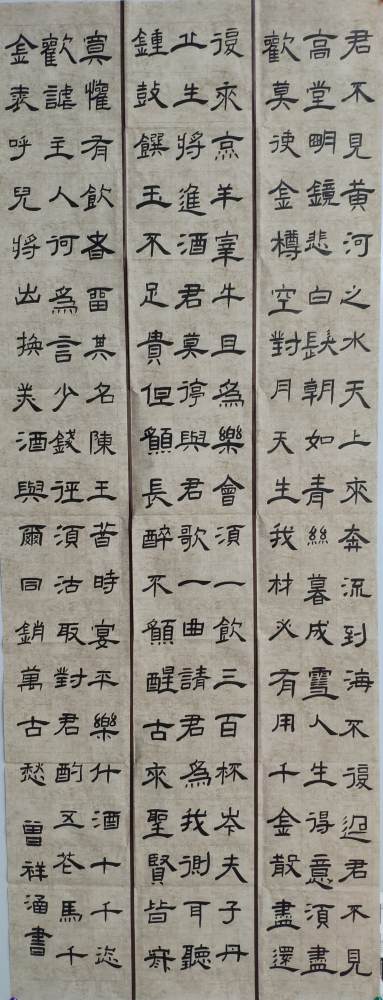 君不見黃河之水天上來奔流到海不復迴君不見
高堂眀鏡悲白髮朝如青絲暮成雪人生得意須盡
歡莫使金樽空對月天生我材必有用千金散盡還
復來烹羊宰牛且為樂會須一飲三百杯岑夫子丹
丘生將進酒君莫停與君歌一曲請君為我側耳聽
鍾鼓饌玉不足貴但願長醉不願醒古來聖賢皆寂
寞惟有飲者留其名陳王昔時宴平樂什酒十千恣
歡謔主人何為言少錢徑須沽取對君酌五花馬千
金裘呼兒將出換美酒與爾同銷萬古愁 曾祥涵書